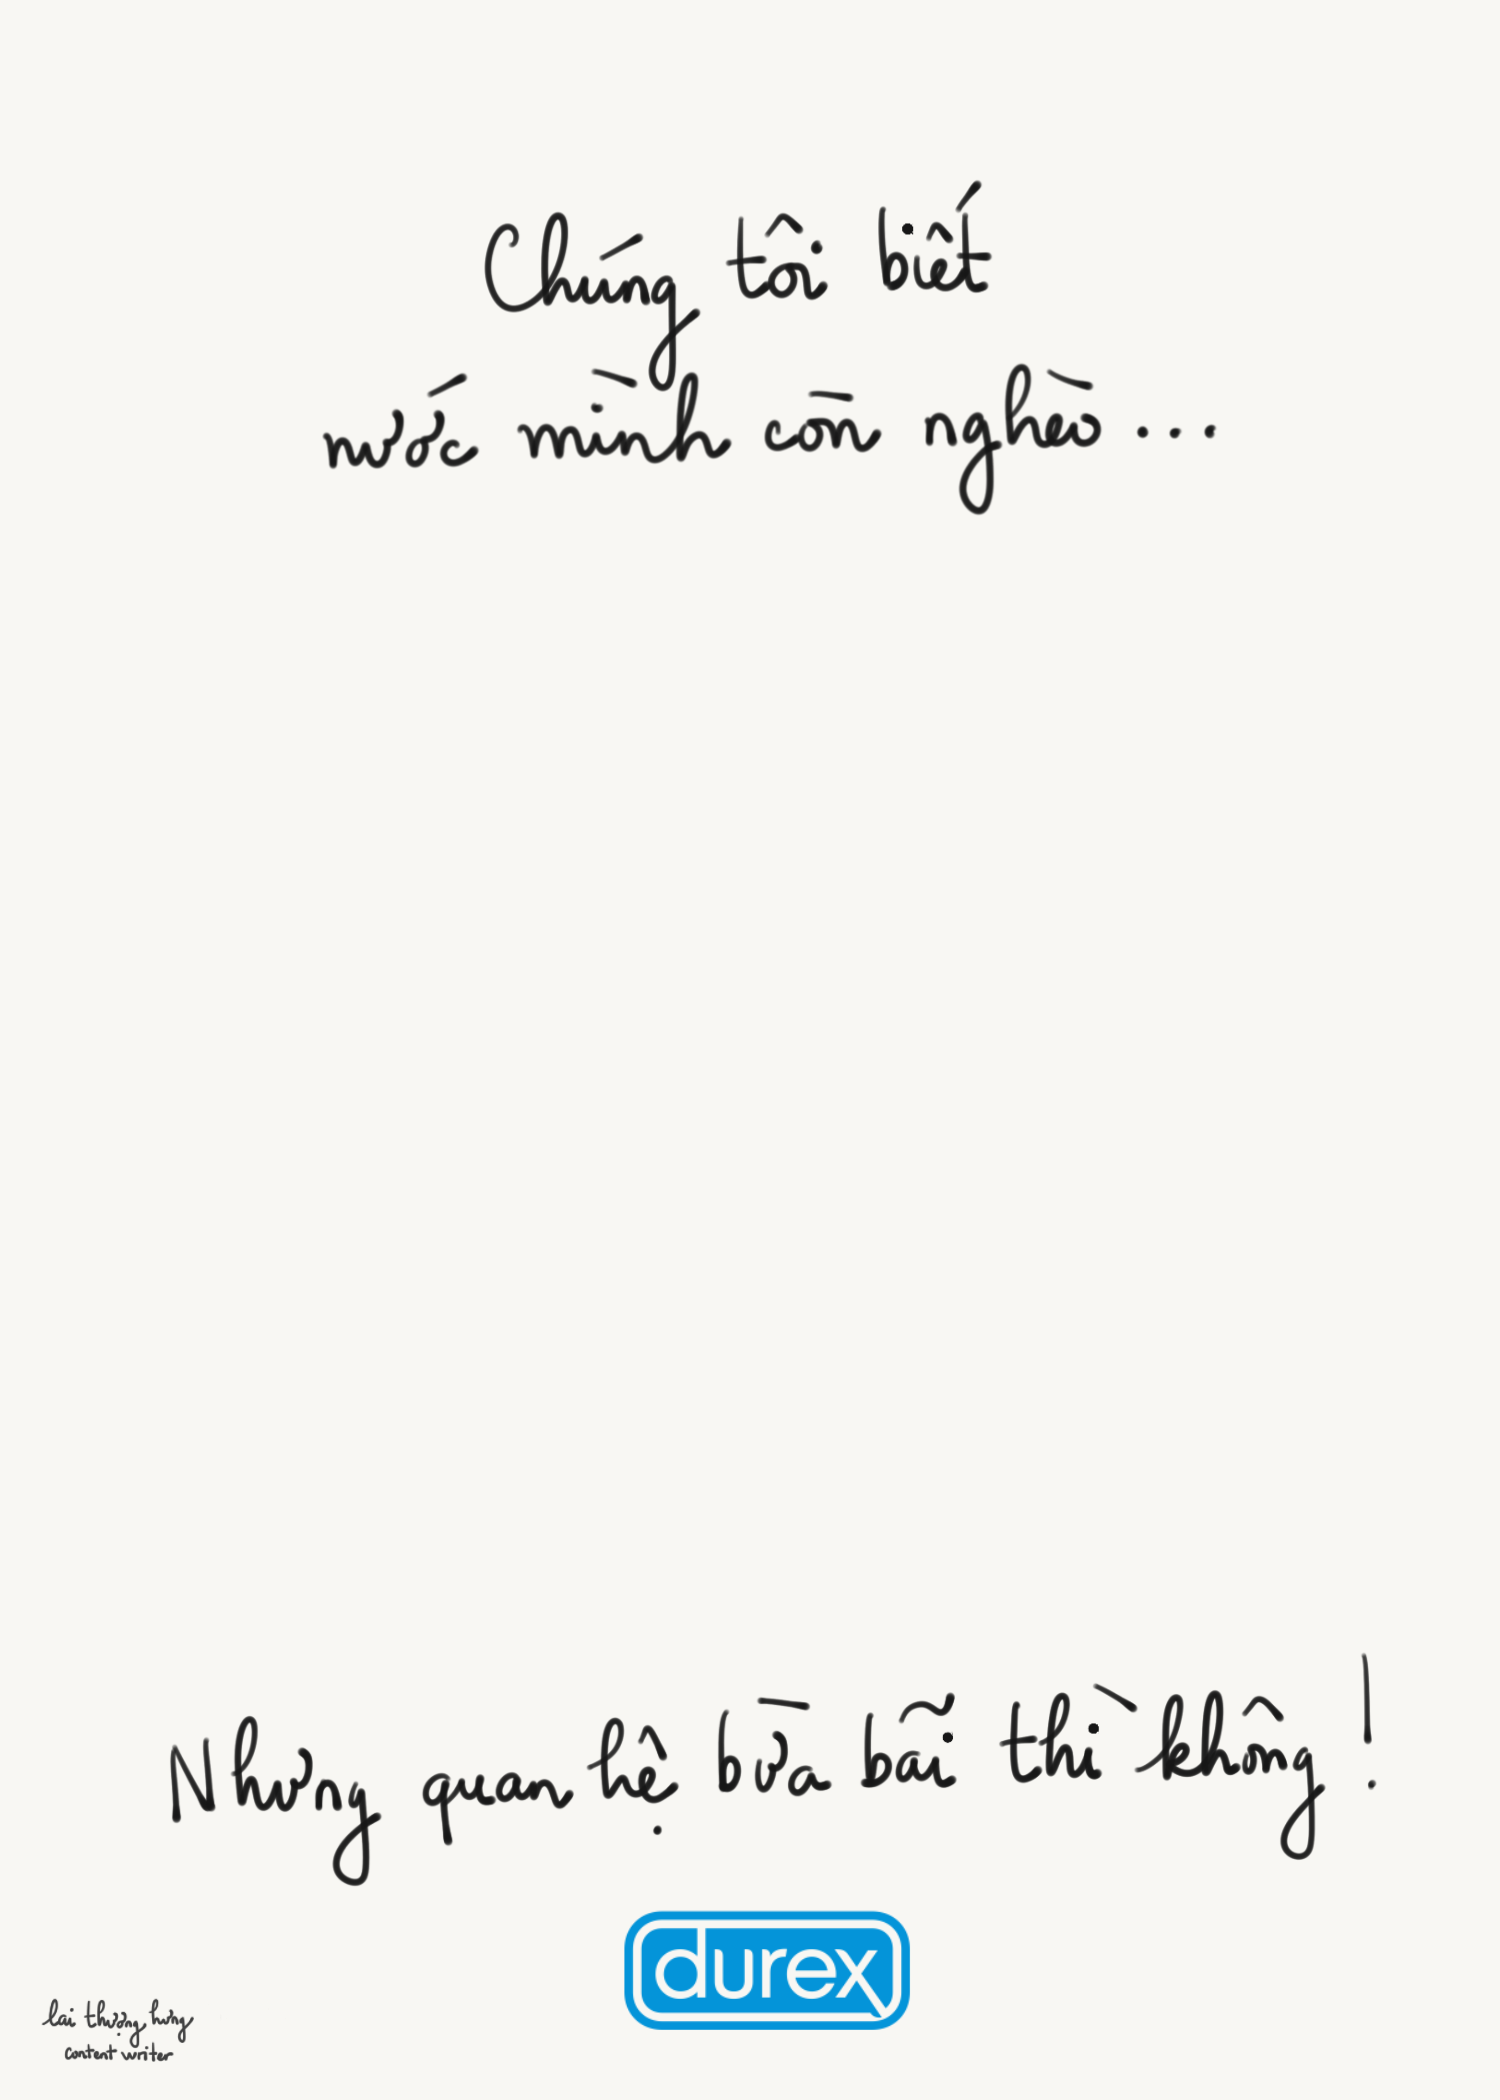 Chúng tôi biết
nước mình còn nghèo...
Nhưng quan hệ bừa bãi thì không!
durex
lai thượng hưng
content writer